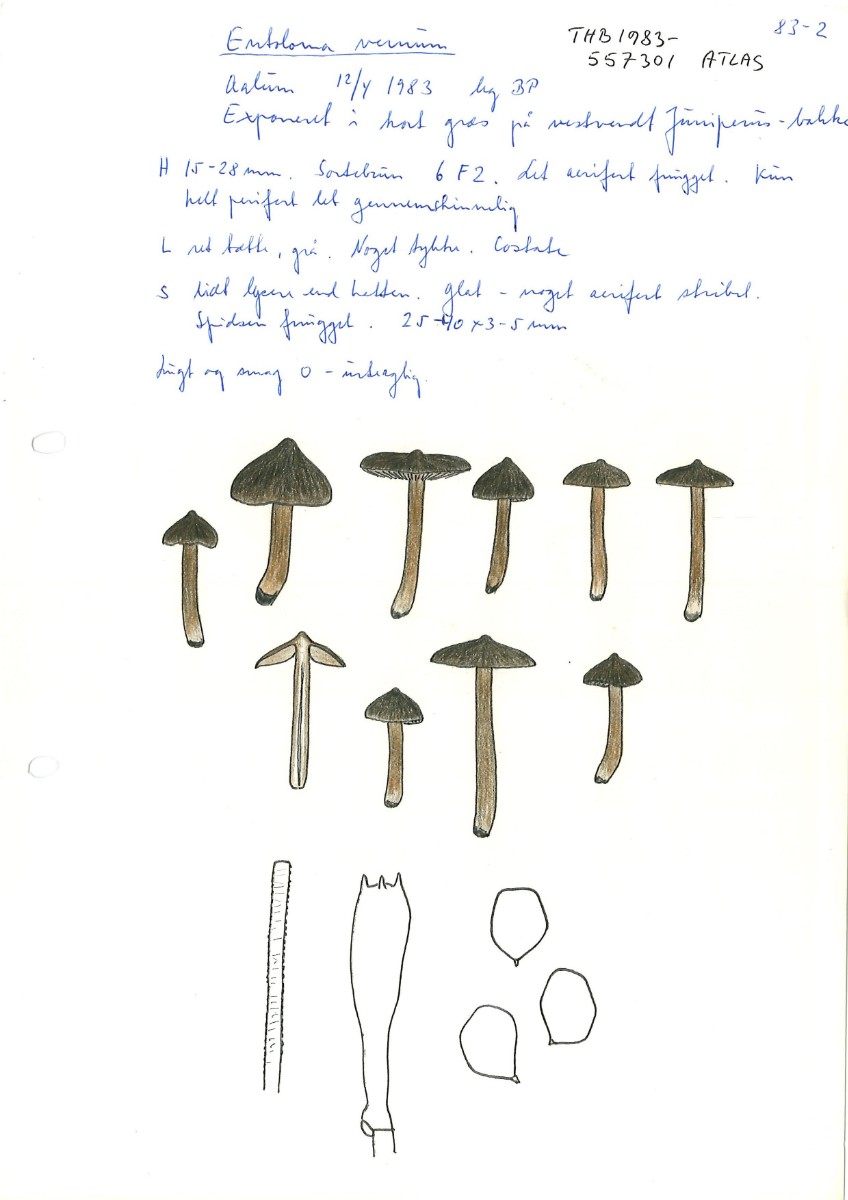 Entoloma vernum
THB 1983-
557301 ATLAS
83-2
12/4 1983 leg BP
Exponeret i kort græs på vestvendt Juniperus-bakke
H 15-28 mm. Sortebrun 6 F 2. Let aerifert frugget. Kun
helt perifert let gennemskinnelig
L ret tætte, grå. Noget tykke. Costate
S lidt lysere end hatten. Glat - noget aerifert stribet.
Spidsen frugget. 25-40 x 3-5 mm
Lugt og smag 0 - ubehagelig.